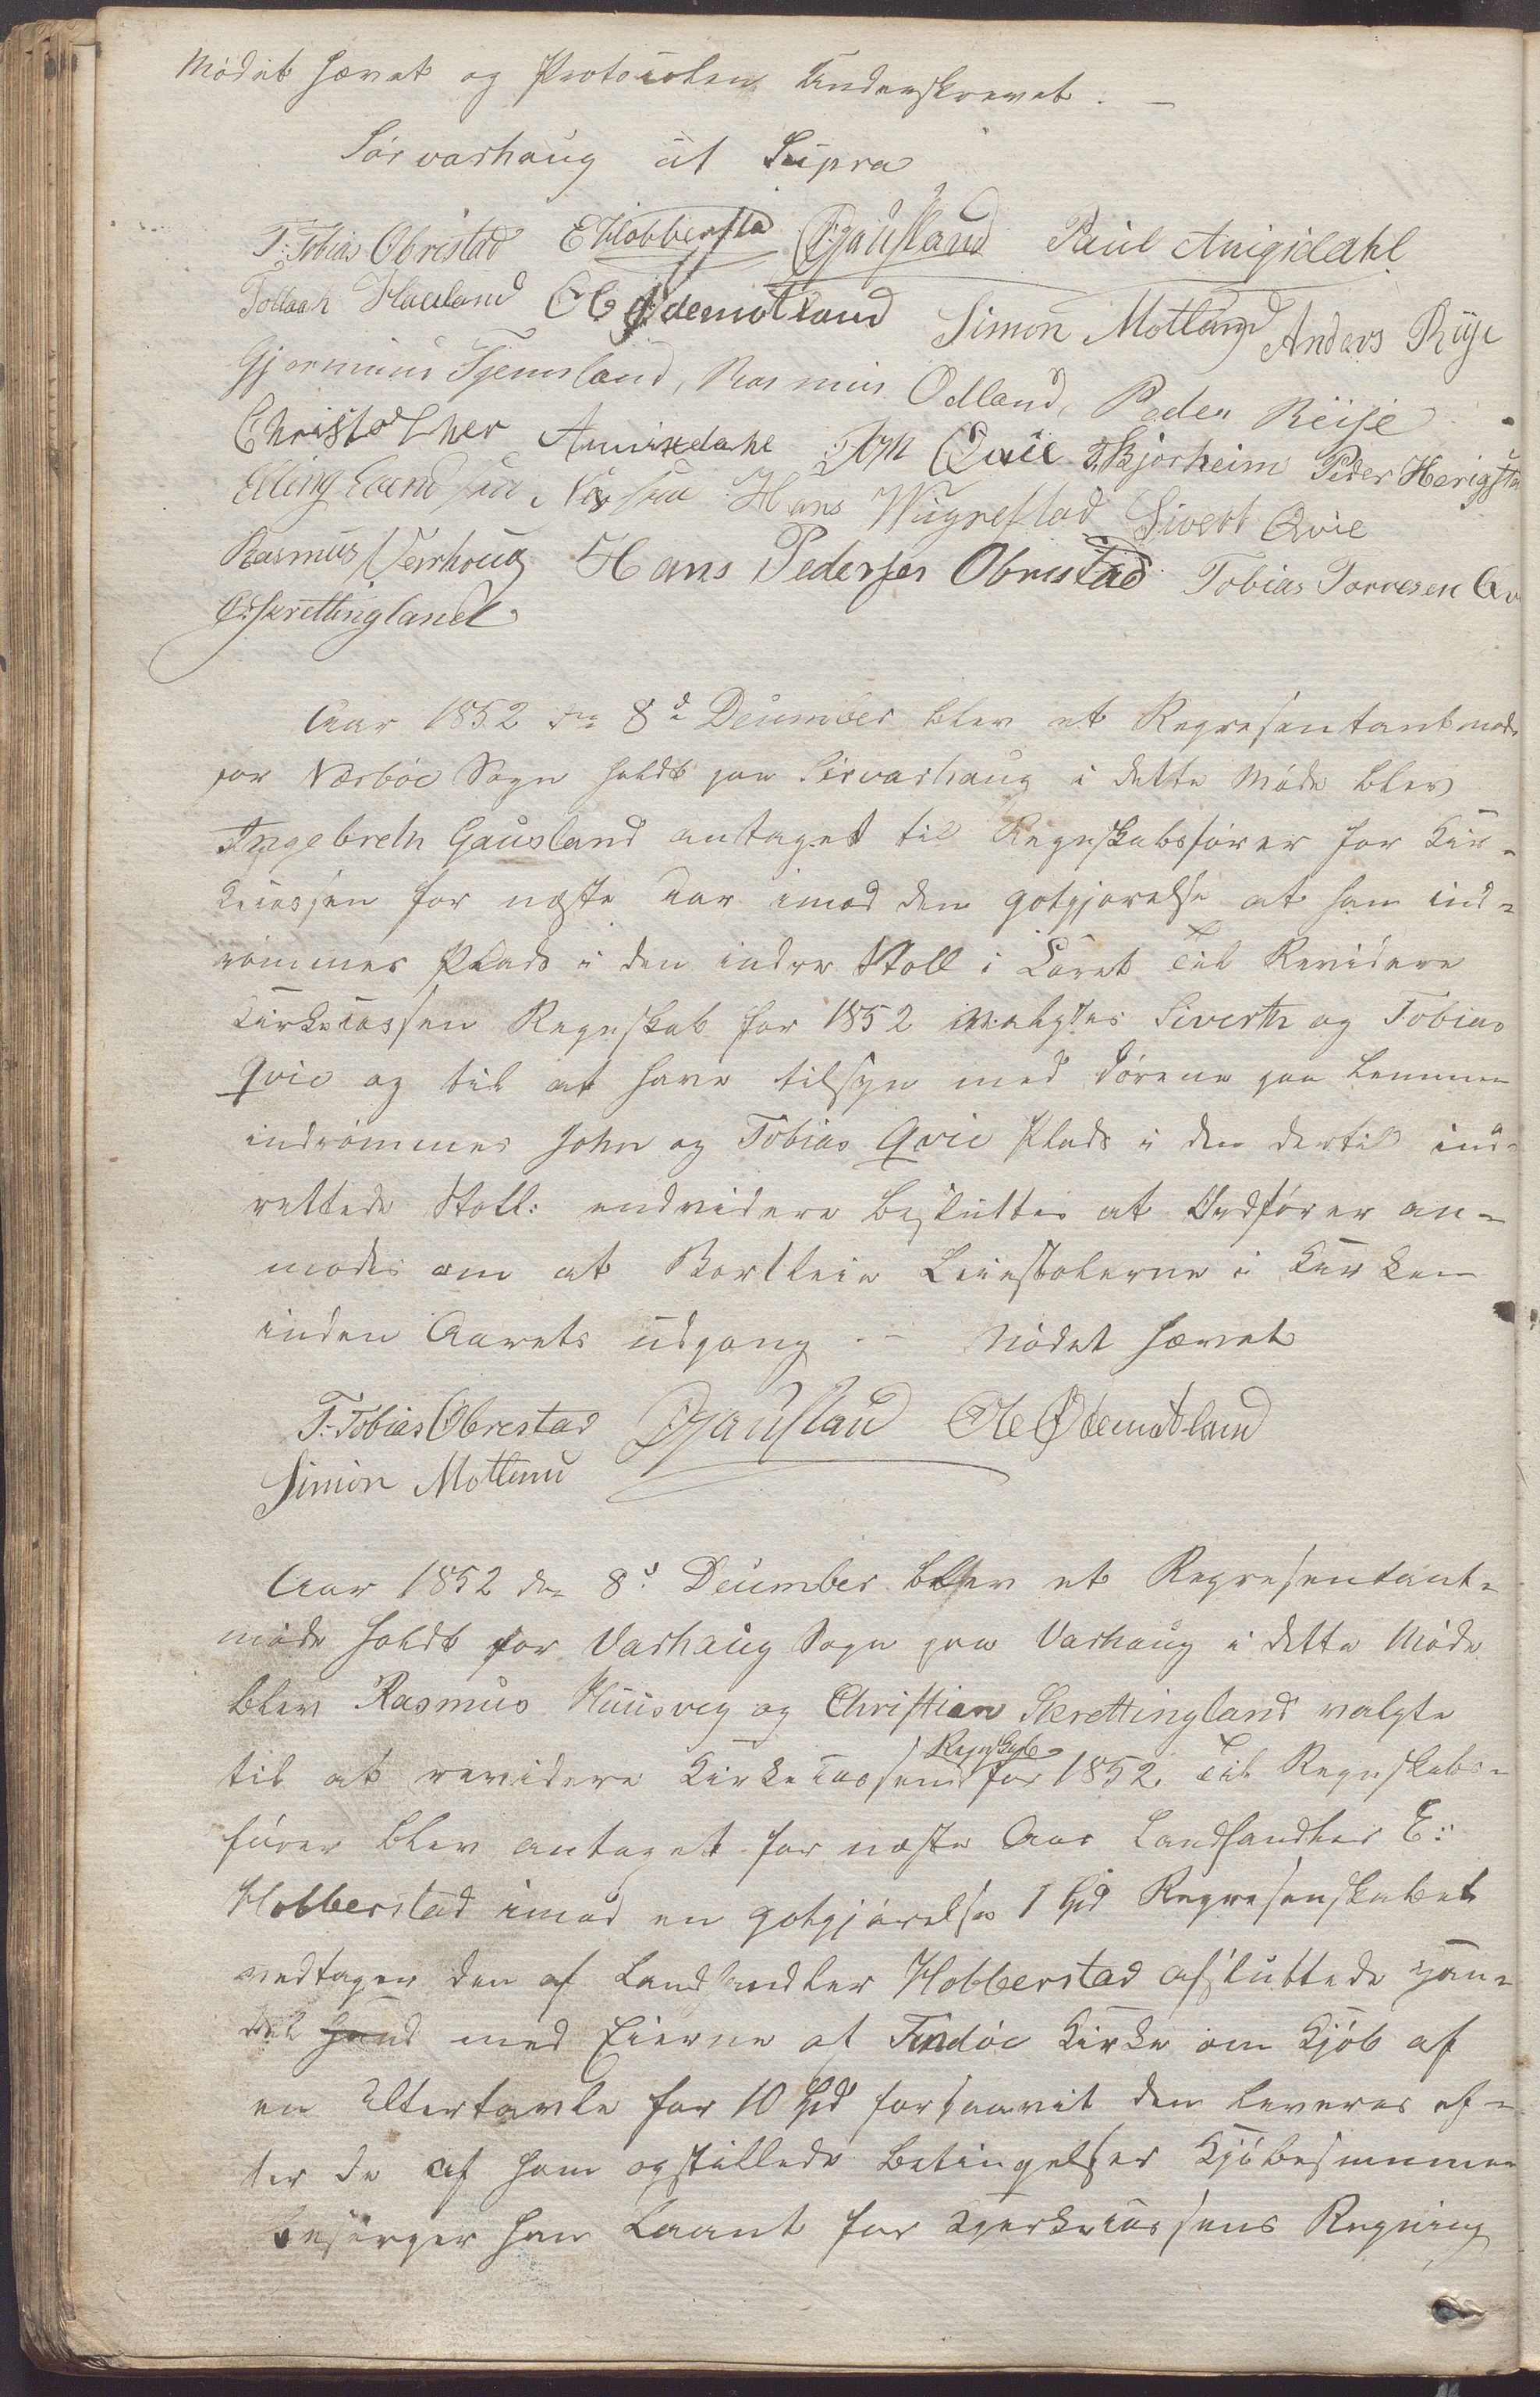 Mødet hævet og Protocolen Underskrevet. –
Sørvarhaug ut Supra
T: Tobias Obrestad E Hobberstad Gausland Paul Auigidahl
Tollach Haeland Ole Ødemotland Simon Motland Anders Riije
Gjermund Tjemsland, Rasmus Odland, Peder Reije
Christopher Auuikdahl John Qvie Bjorheim Peder Herigsta
Elling Hans Wigrestad Sivert Qvie
Rasmus Verhoug Hans Pedersen Obrestad Tobias Torresen Qv
C: Skrettingland
Aar 1852 den 8de December blev et Representantmøde
for Nærbøe Sogn holdt paa Sørvarhaug i dette Møde blev
Ingebreth Gausland antaget til Regnskabsfører for Kir-
kecassen for næste Aar imod den gotgjørelse at han ind-
rømmes Plads i den indre Stoll i Coret Til Revidere
Kirkecassen Regnskab for 1852 valgtes Siverth og Tobias
Qvie og til at have tilsyn med Dørene paa Lemmen
indrømmes John og Tobias Qvie Plads i den dertil ind-
rettede Stoll: endvidere besluttes at Ordfører an-
modes om at Bortleie Leiestolerne i Kirken
inden Aarets udgang. – Mødet hævet
T: Tobias Obrestad Gausland Ole Ødemotland
Simon Motland
Aar 1852 den 8de December blev et Representant-
møde holdt for Varhaug Sogn paa Varhaug i dette Møde
blev Rasmus Huusveg og Christian Skrettingland valgte
til at revidere Kirkecassens Regnskab for 1852. Til Regnskabs-
fører blev antaget for næste Aar Landhandler E:
Hobberstad imod en gotgjørelse 1 Spd Represenskabet
vedtager den af Landhandler Hobberstad afsluttede han-
del med Eierne af Kirke om Kjøb af
en Altertavle for 10 Spd forsaavit den leveres ef-
ter de af ham opstillede betingelser Kjøbesummen
besørger han Laant for Kjerkecassens Regning